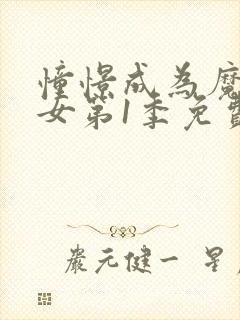 憧憬成為魔
女第1季免費
嚴元健一 星